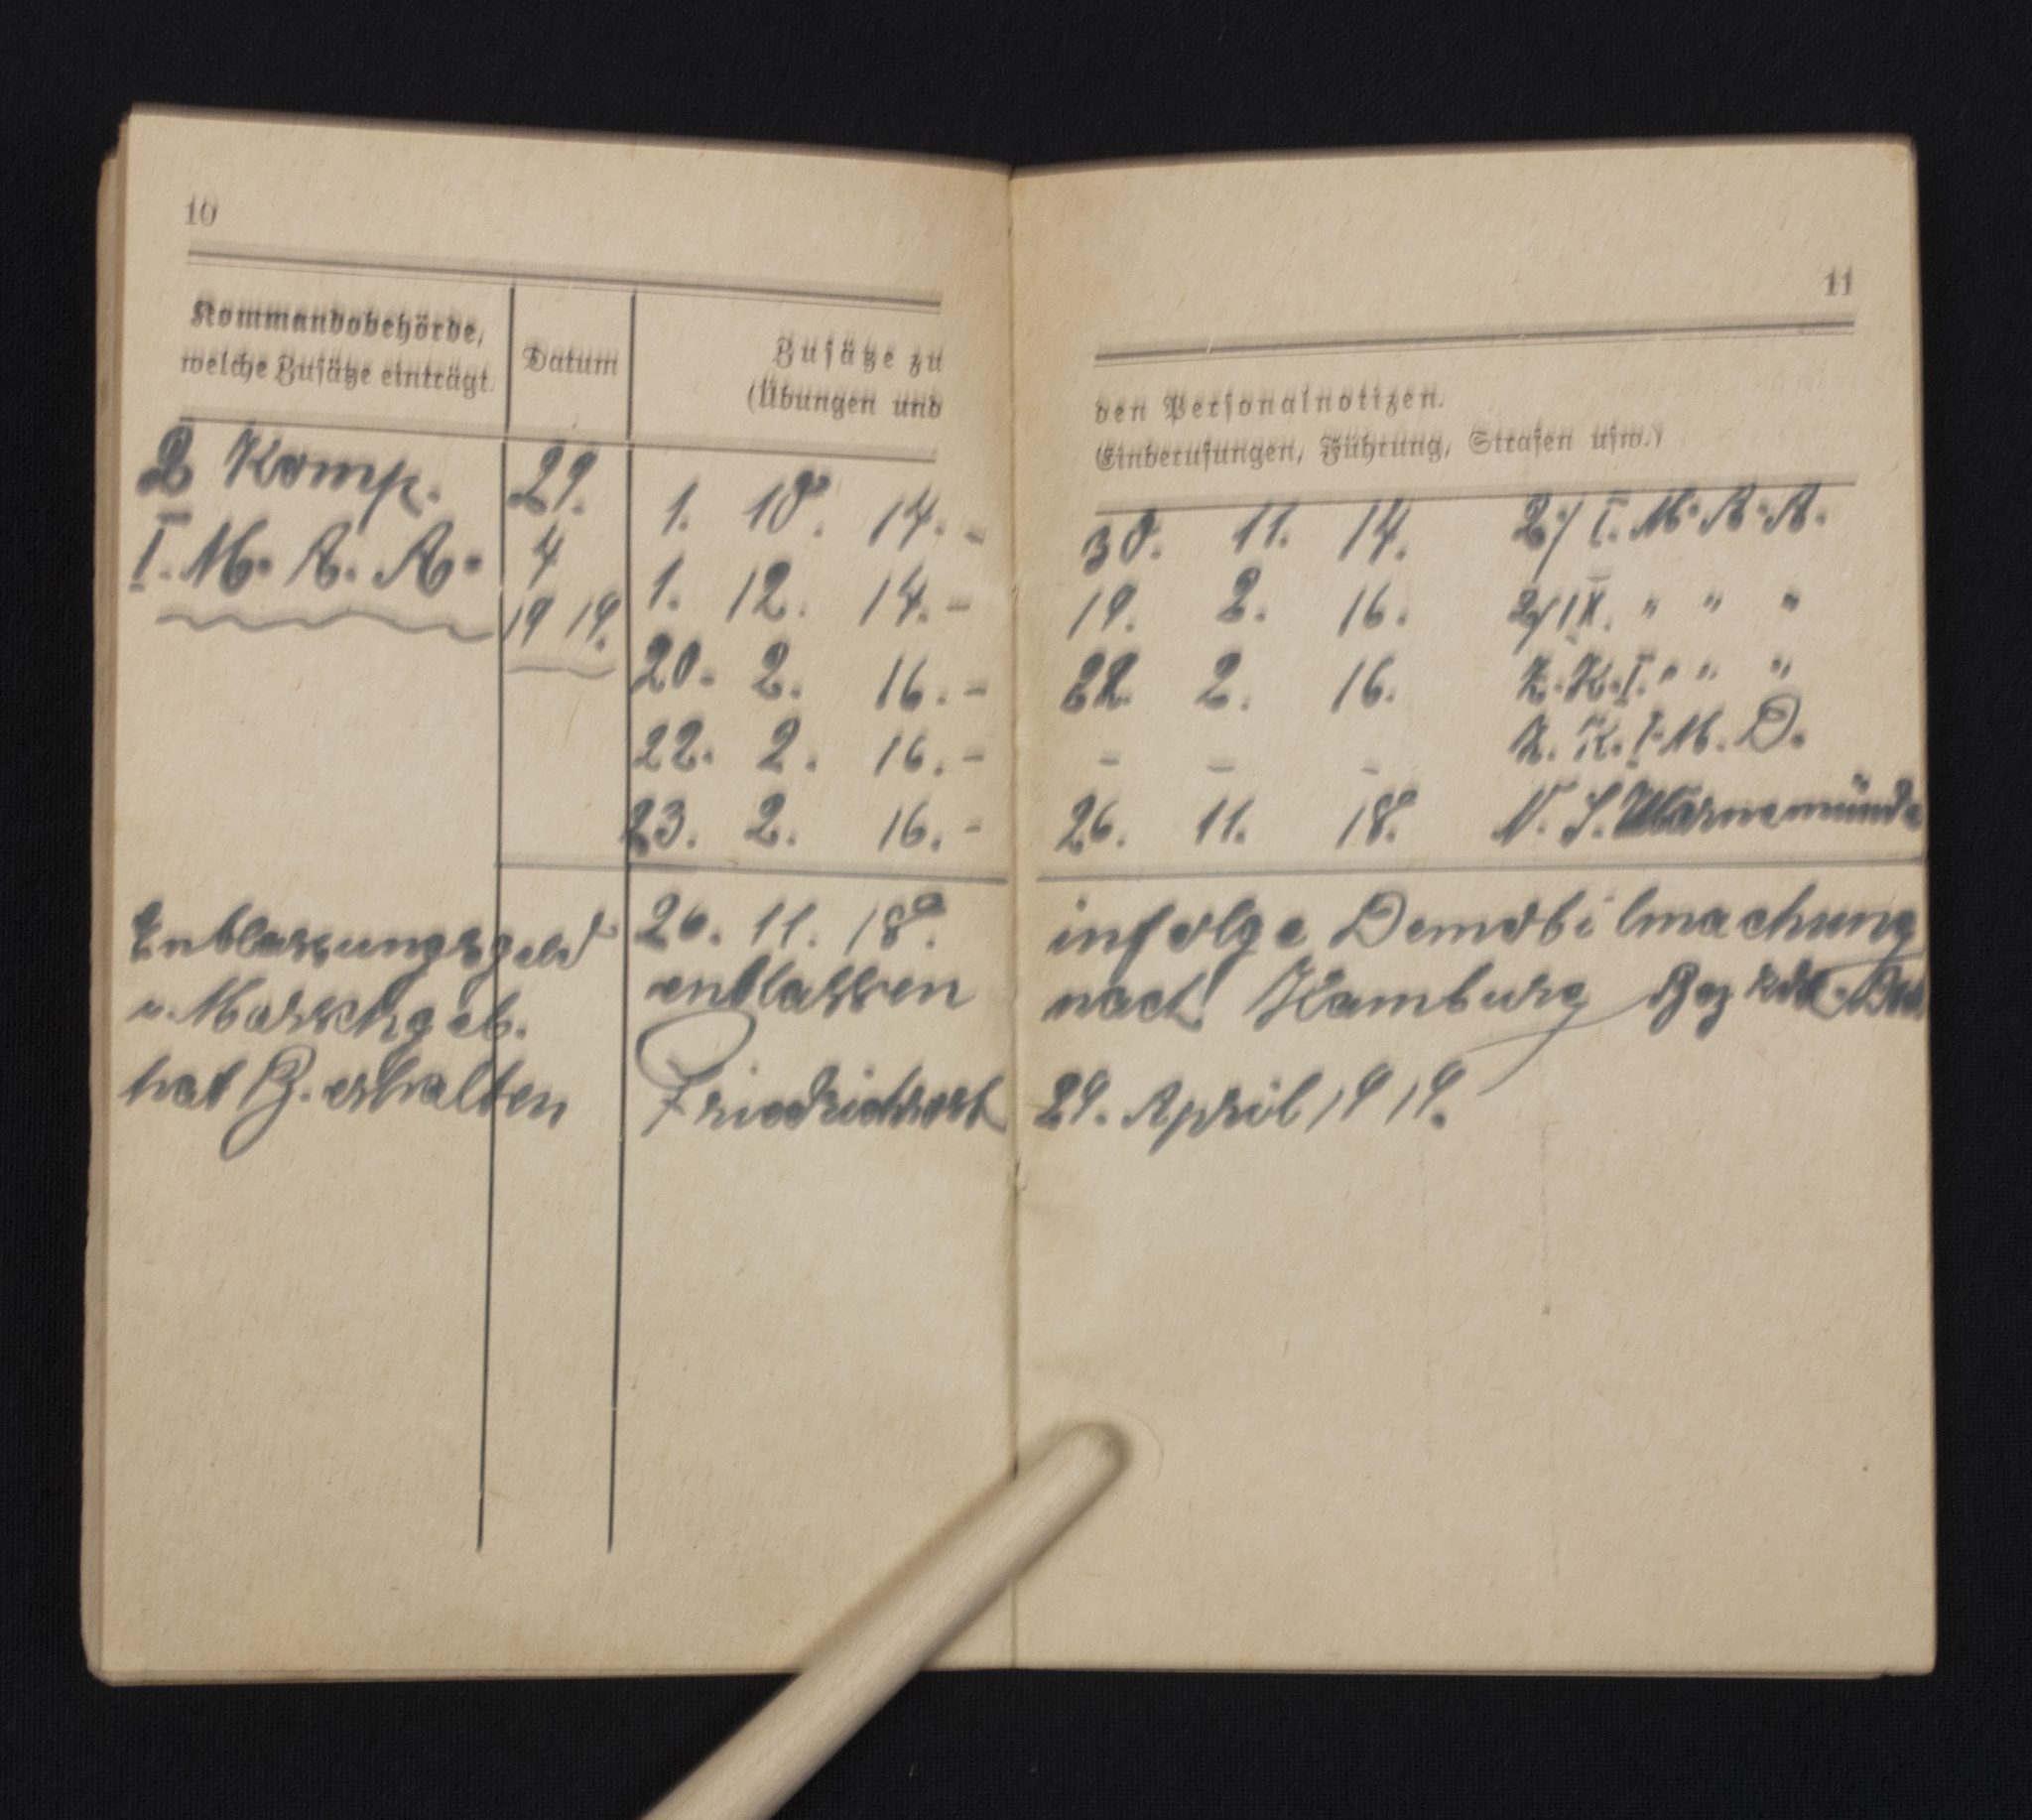 10
Kommandobehörde,
welche Zusätze einträgt.
Datum
Zusätze zu
(Übungen und
2 Komp.
I. M. A. A.
29.
4
19 19.
1. 10. 14. -
1. 12. 14. -
20. 2. 16. -
22. 2. 16. -
23. 2. 16. -
Entlassungsgeld
u. Marschgeb.
hat Z. erhalten
26. 11. 18.
entlassen
Friedrichsort
11
den Personalnotizen.
Einberufungen, Führung, Strafen usw.)
30. 11. 14. 2/ I. M. A. A.
19. 2. 16. 2/ IX. " " "
22. 2. 16. K. I. " " "
- - - K. I. M. D.
26. 11. 18. N. S. Warnemünde
infolge Demobilmachung
nach Hamburg
29. April 19 19.